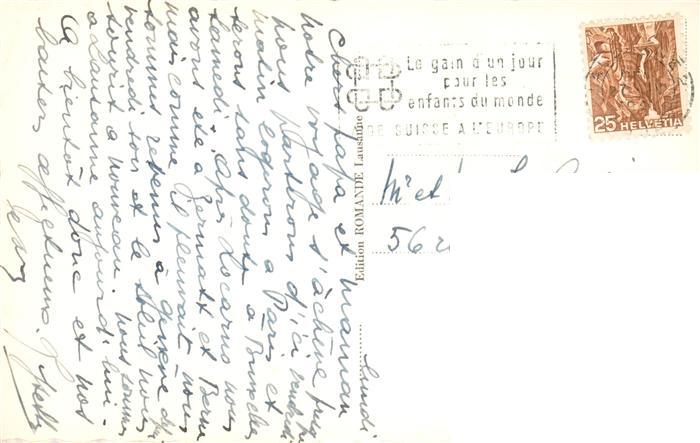 Lundi
Chers Papa et Maman
Notre voyage s'achève puisque
nous partirons d'ici vendredi
matin logerons à Paris et
serons sans doute à Bruxelles
samedi. Après Locarno nous
avons été à Zermatt et Berne
mais comme il pleuvait nous
sommes revenus à Genève dès
vendredi soir et le soleil nous
sourit à nouveau. Nous sommes
à Lausanne aujourd'hui.
A bientôt donc et nos
baisers affectueux.
Edition ROMANDE Lausanne
Le gain d'un jour
pour les
enfants du monde
DE SUISSE A L'EUROPE
25 HELVETIA
M et
56